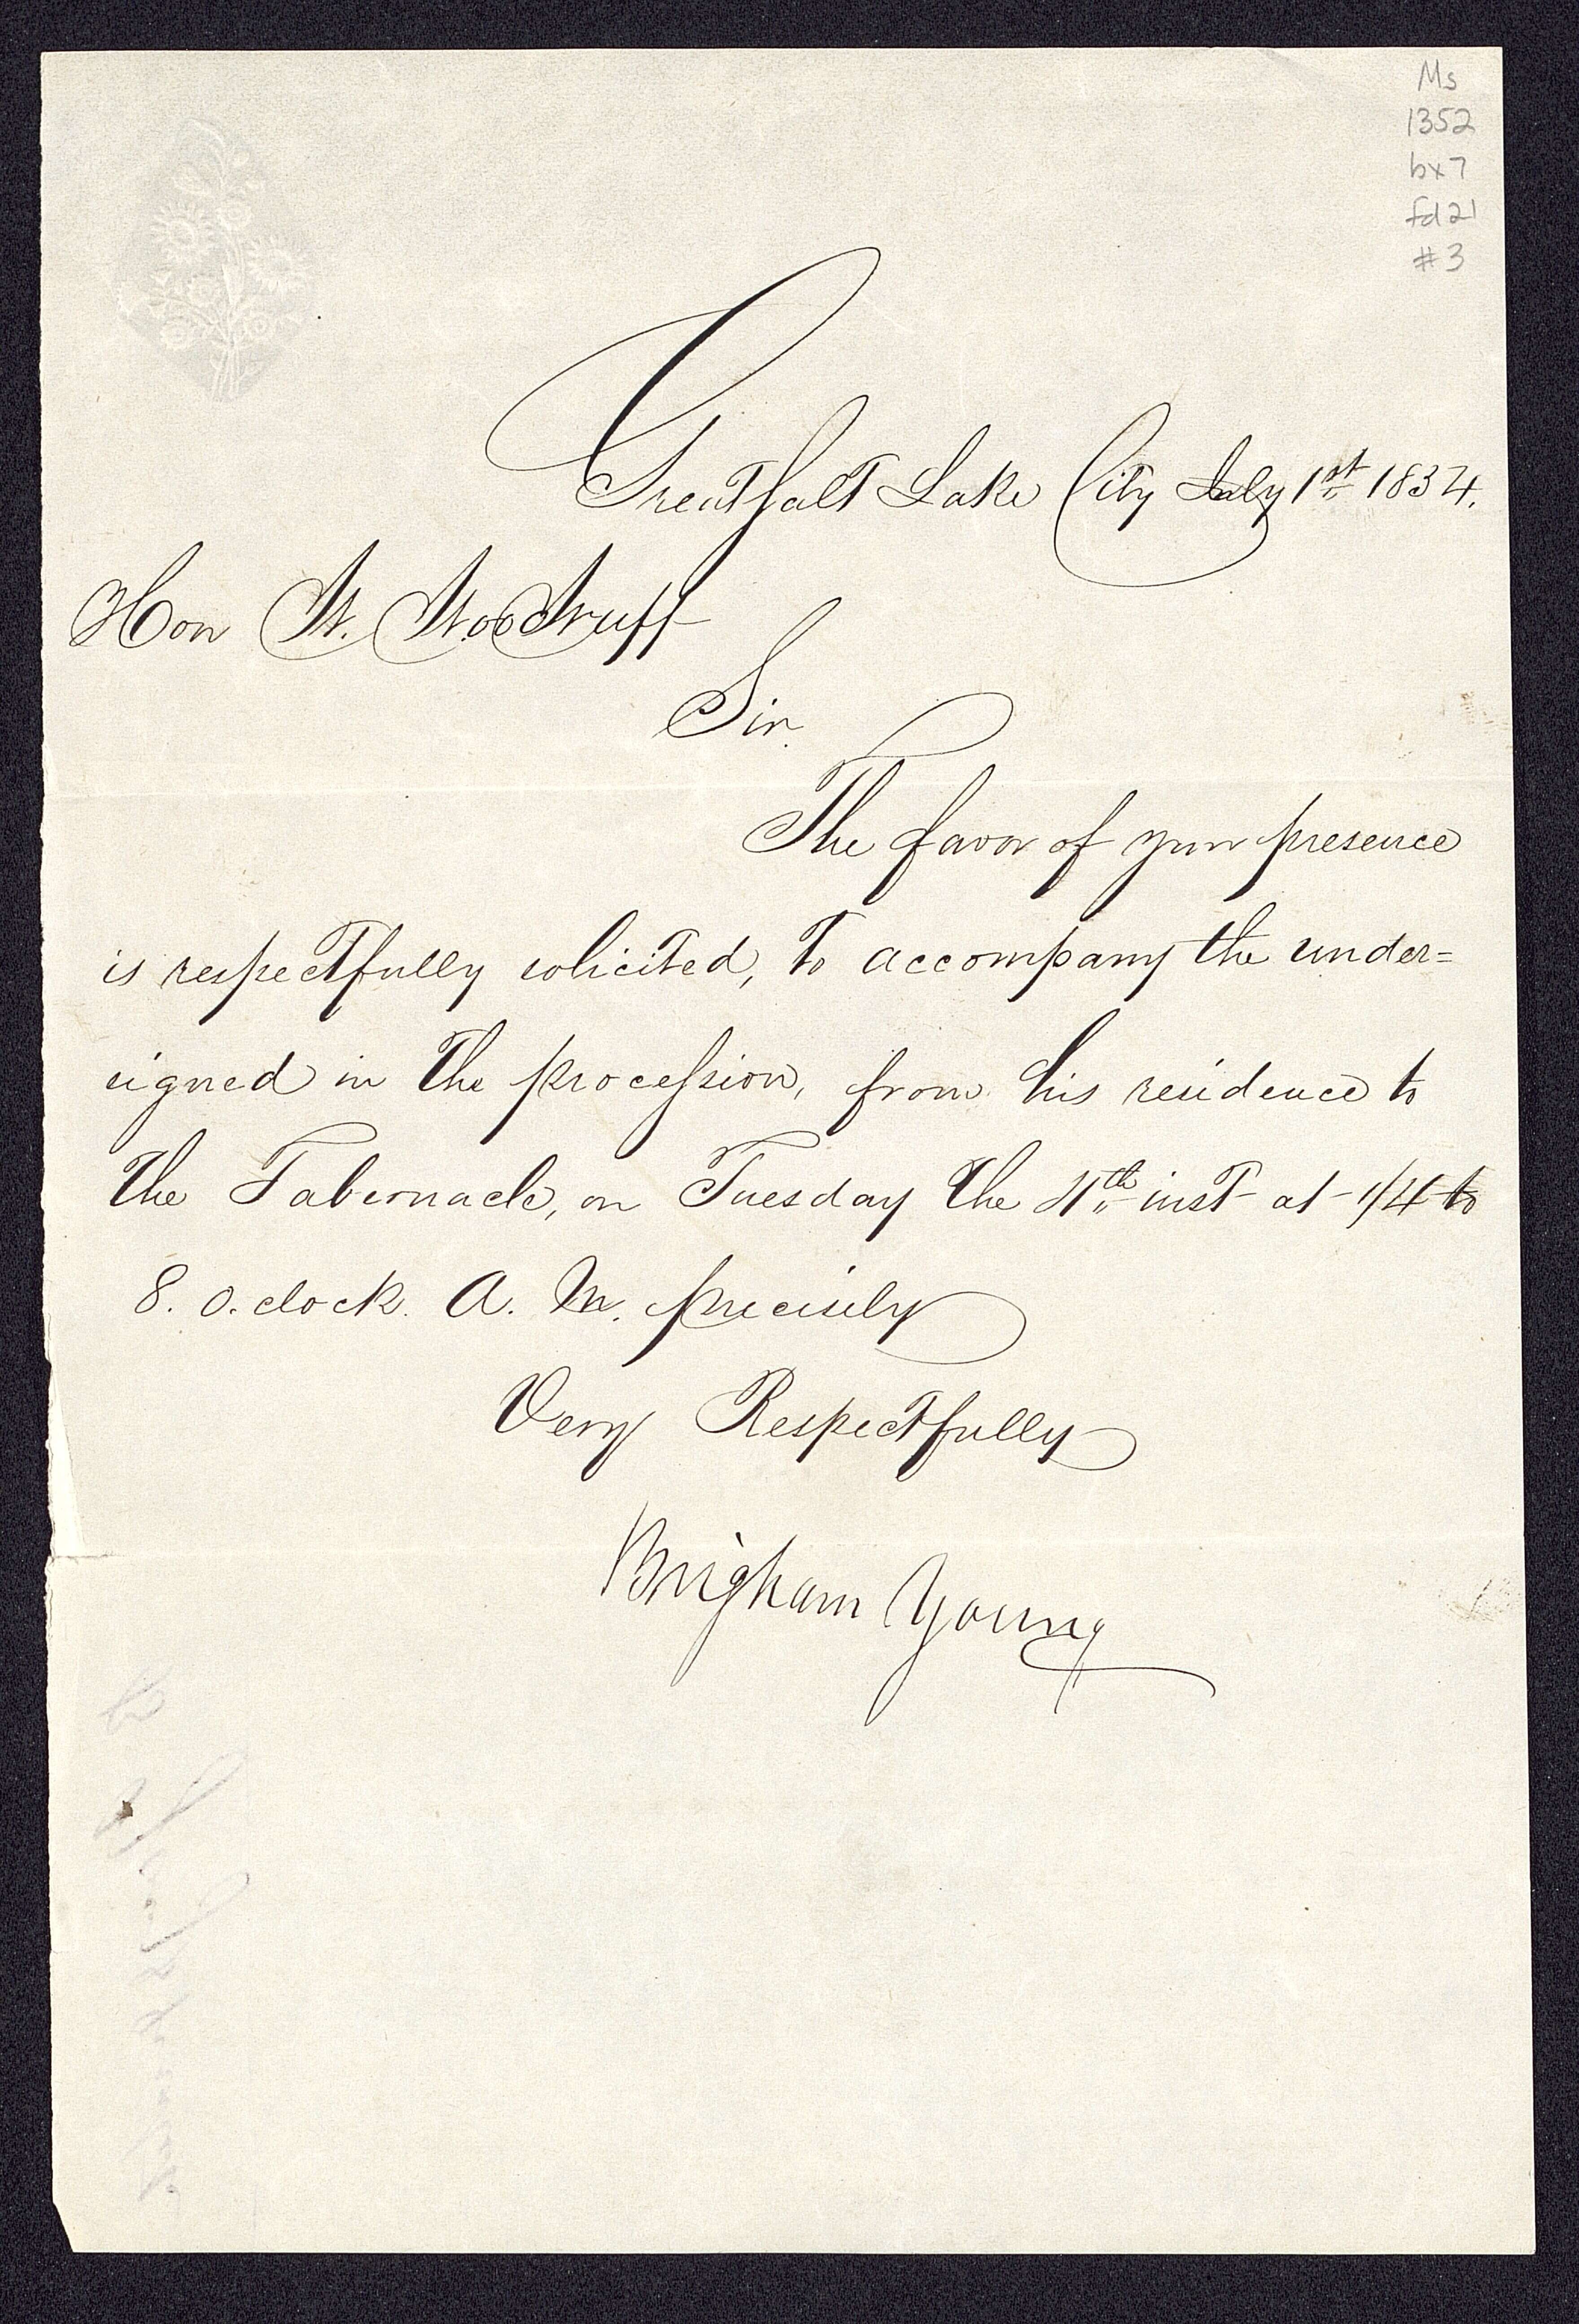 Ms
1352
bx7
fd21
#3
Great Salt Lake City July 1st 1854.
Hon W. Woodruff
Sir.
The favor of your presence
is respectfully solicited, to accompany the under=
signed in the procession, from his residence to
the Tabernacle, on Tuesday the 4th inst at 1/4 to
8. o.clock. A. M. precisely
Very Respectfully
Brigham Young